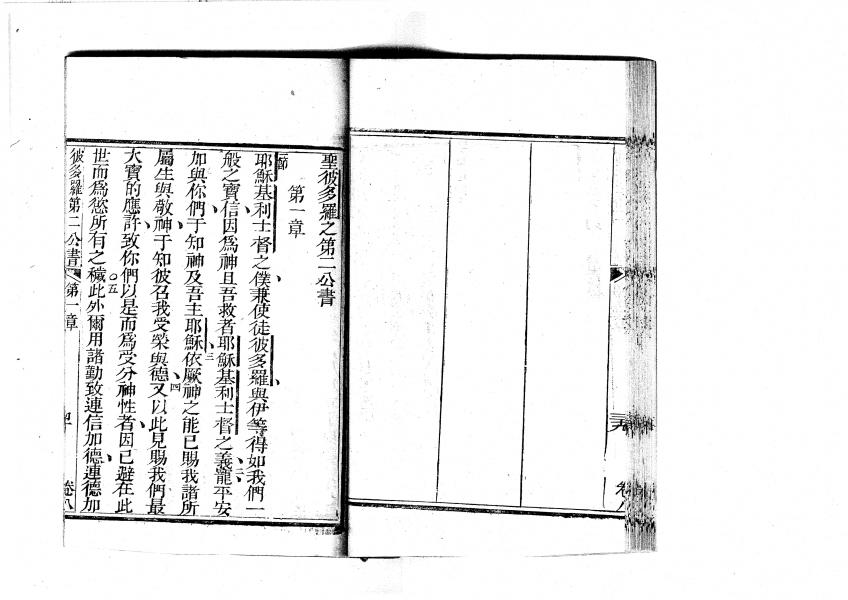 聖彼多羅之第二公書
第一章
耶穌基利士督之僕兼使徒彼多羅與伊等得如我們一
般之寶信因爲神且吾救者耶穌基利士督之義寵平安
加與你們于知神及吾主耶穌依厥神之能已賜我諸所
屬生與敬神于知彼召我受榮與德又以此見賜我們最
大寶的應許致你們以是而爲受分神性者因已避在此
世而爲慾所有之穢此外爾用諸勤致連信加德連德加
彼多羅第二公書 第一章 卷八